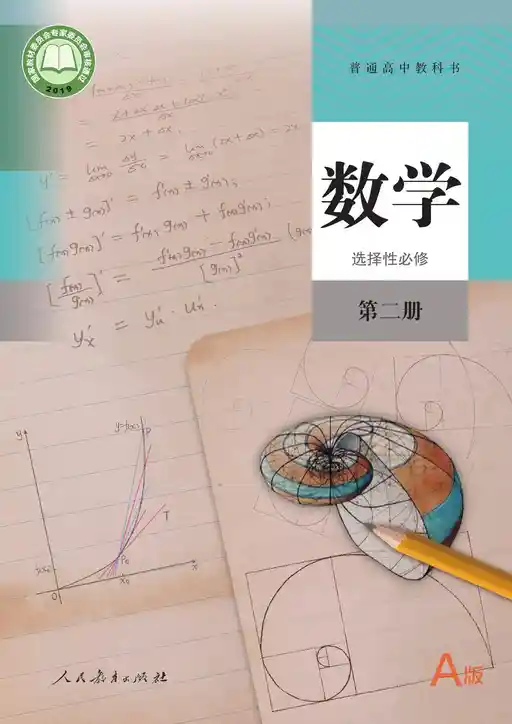 国家教材委员会专家委员会审核通过
2019
普通高中教科书
数学
选择性必修
第二册
= 2x + Δx,
y' = lim Δx→0 Δy/Δx = lim Δx→0 (2x + Δx) = 2x
[f(x) ± g(x)]' = f'(x) ± g'(x);
[f(x)g(x)]' = f'(x)g(x) + f(x)g'(x);
[f(x)/g(x)]' = f'(x)g(x) - f(x)g'(x) / [g(x)]² (g(x)
y'x = y'u · u'x.
y
y=f(x)
P
T
P₀
x₀
x
O
人民教育出版社
A版